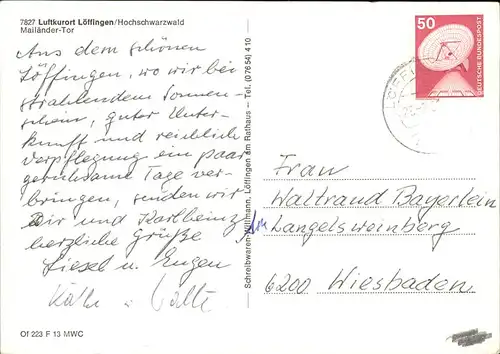 7827 Luftkurort Löffingen/Hochschwarzwald
Mailänder-Tor
Aus dem schönen
Löffingen, wo wir bei
strahlendem Sonnen-
schein, guter Unter-
kunft und reichlich
Verpflegung ein paar
geruhsame Tage ver-
bringen, senden wir
Dir und Karlheinz
herzliche Grüße
Liesel u. Eugen
Käthe u.
Of 223 F 13 MWC
Schreibwaren-Willmann, Löffingen am Rathaus – Tel. (0 76 54) 4 10
50
DEUTSCHE BUNDESPOST
Frau
Waltraud Bayerlein
Langelsweinberg
6200 Wiesbaden